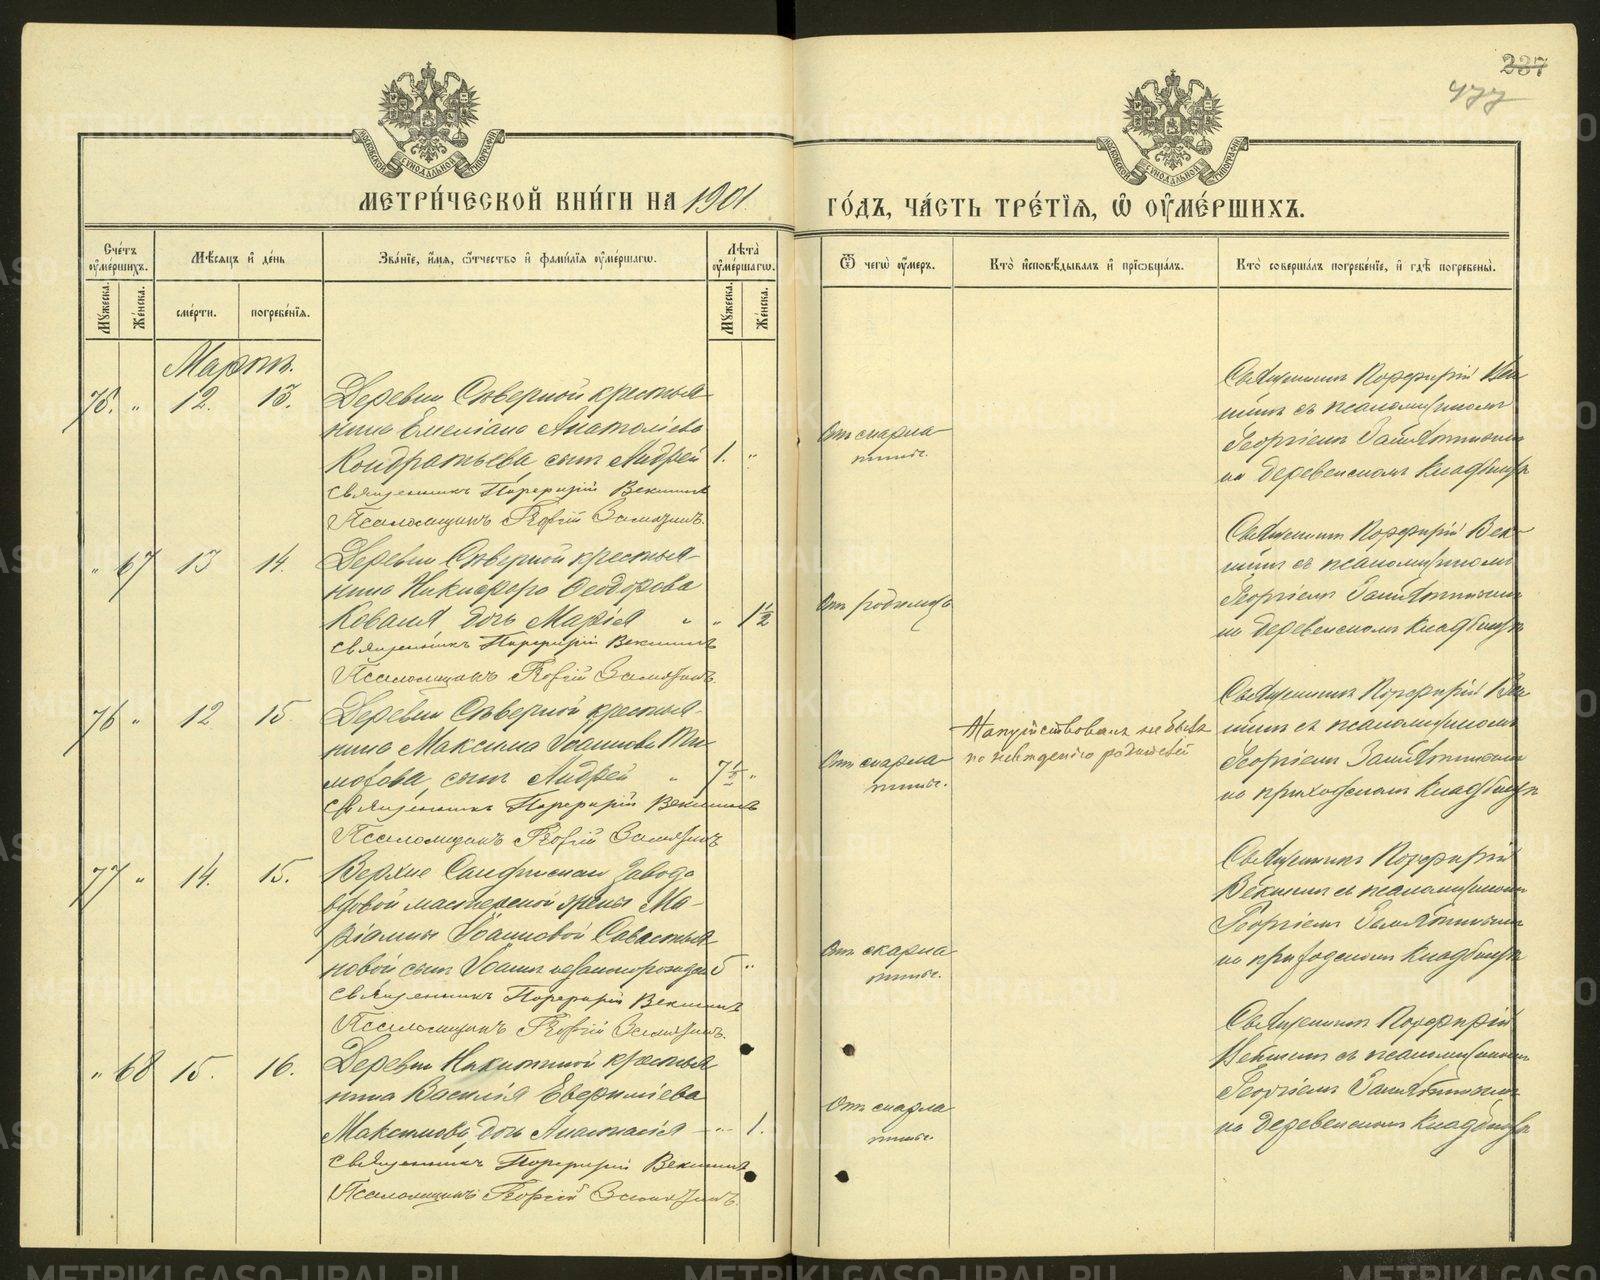 237
477
МОСКОВСКОЙ СѴНОДАЛЬНОЙ ТИПОГРАФІИ
МОСКОВСКОЙ СѴНОДАЛЬНОЙ ТИПОГРАФІИ
МЕТРИ́ЧЕСКОЙ КНИ́ГИ НА 1901
ГО́ДЪ, ЧА́СТЬ ТРЕ́ТІѦ, Ѽ ОУ҆МЕ́РШИХЪ.
Сче́тъ оу҆ме́ршихъ.
Мѣ́сяцъ и҆ де́нь
Зва́ніе, и҆́мя, ѻ҆́тчество и҆ фами́лія оу҆ме́ршагѡ.
Лѣта̀ оу҆ме́ршагѡ.
Ѿ чегѡ̀ оу҆́меръ.
Кто̀ и҆сповѣ́дывалъ и҆ прїѡбща́лъ.
Кто̀ соверша́лъ погребе́ніе, и҆ гдѣ̀ погребены̀.
Му́жеска.
Же́нска.
сме́рти.
погребе́нія.
Му́жеска.
Же́нска.
Мартъ.
75. " 12. 13. Деревни Сѣверной крестья-
нина Емеліана Анатоліева
Кондратьева, сынъ Андрей 1. "
Священникъ Порфирій Векшинъ
Псаломщикъ Георгій Замятинъ.
Отъ скарла
тины.
Священникъ Порфирій Век
шинъ съ псаломщикомъ
Георгіемъ Замятинымъ
на деревенскомъ кладбищѣ
" 67 13 14. Деревни Сѣверной крестья-
нина Никифора Ѳеодорова
Коваля дочь Марія " " 1 1/2
Священникъ Порфирій Векшинъ
Псаломщикъ Георгій Замятинъ.
Отъ родимца
Священникъ Порфирій Век-
шинъ съ псаломщикомъ
Георгіемъ Замятинымъ
на деревенскомъ кладбищѣ
76 " 12 15. Деревни Сѣверной крестья-
нина Максима Іоаннова Ти-
мофова, сынъ Андрей " 7 1/2 "
Священникъ Порфирій Векшинъ
Псаломщикъ Георгій Замятинъ
Отъ скарла
тины.
Напутствованъ не былъ
по невѣденію родителей
Священникъ Порфирій Век
шинъ съ псаломщикомъ
Георгіемъ Замятинымъ
на приходскомъ кладбищѣ
77 " 14. 15. Верхне Санфискаго завода
вдовой мастерской жены Ма-
ріамны Іоанновой Савастья-
новой сынъ Іоаннъ незаконорожден 5 "
Священникъ Порфирій Векшинъ
Псаломщикъ Георгій Замятинъ.
Отъ скарла
тины.
Священникъ Порфирій
Векшинъ съ псаломщикомъ
Георгіемъ Замятинымъ
на приходскомъ кладбищѣ
" 68 15. 16. Деревни Никитиной крестья
нина Василія Евермліева
Максимова, дочь Анастасія - " 1.
Священникъ Порфирій Векшинъ
Псаломщикъ Георгій Замятинъ.
Отъ скарла
тины.
Священникъ Порфирій
Векшинъ съ псаломщикомъ
Георгіемъ Замятинымъ
на деревенскомъ кладбищѣ
METRIKI.GASO-URAL.RU